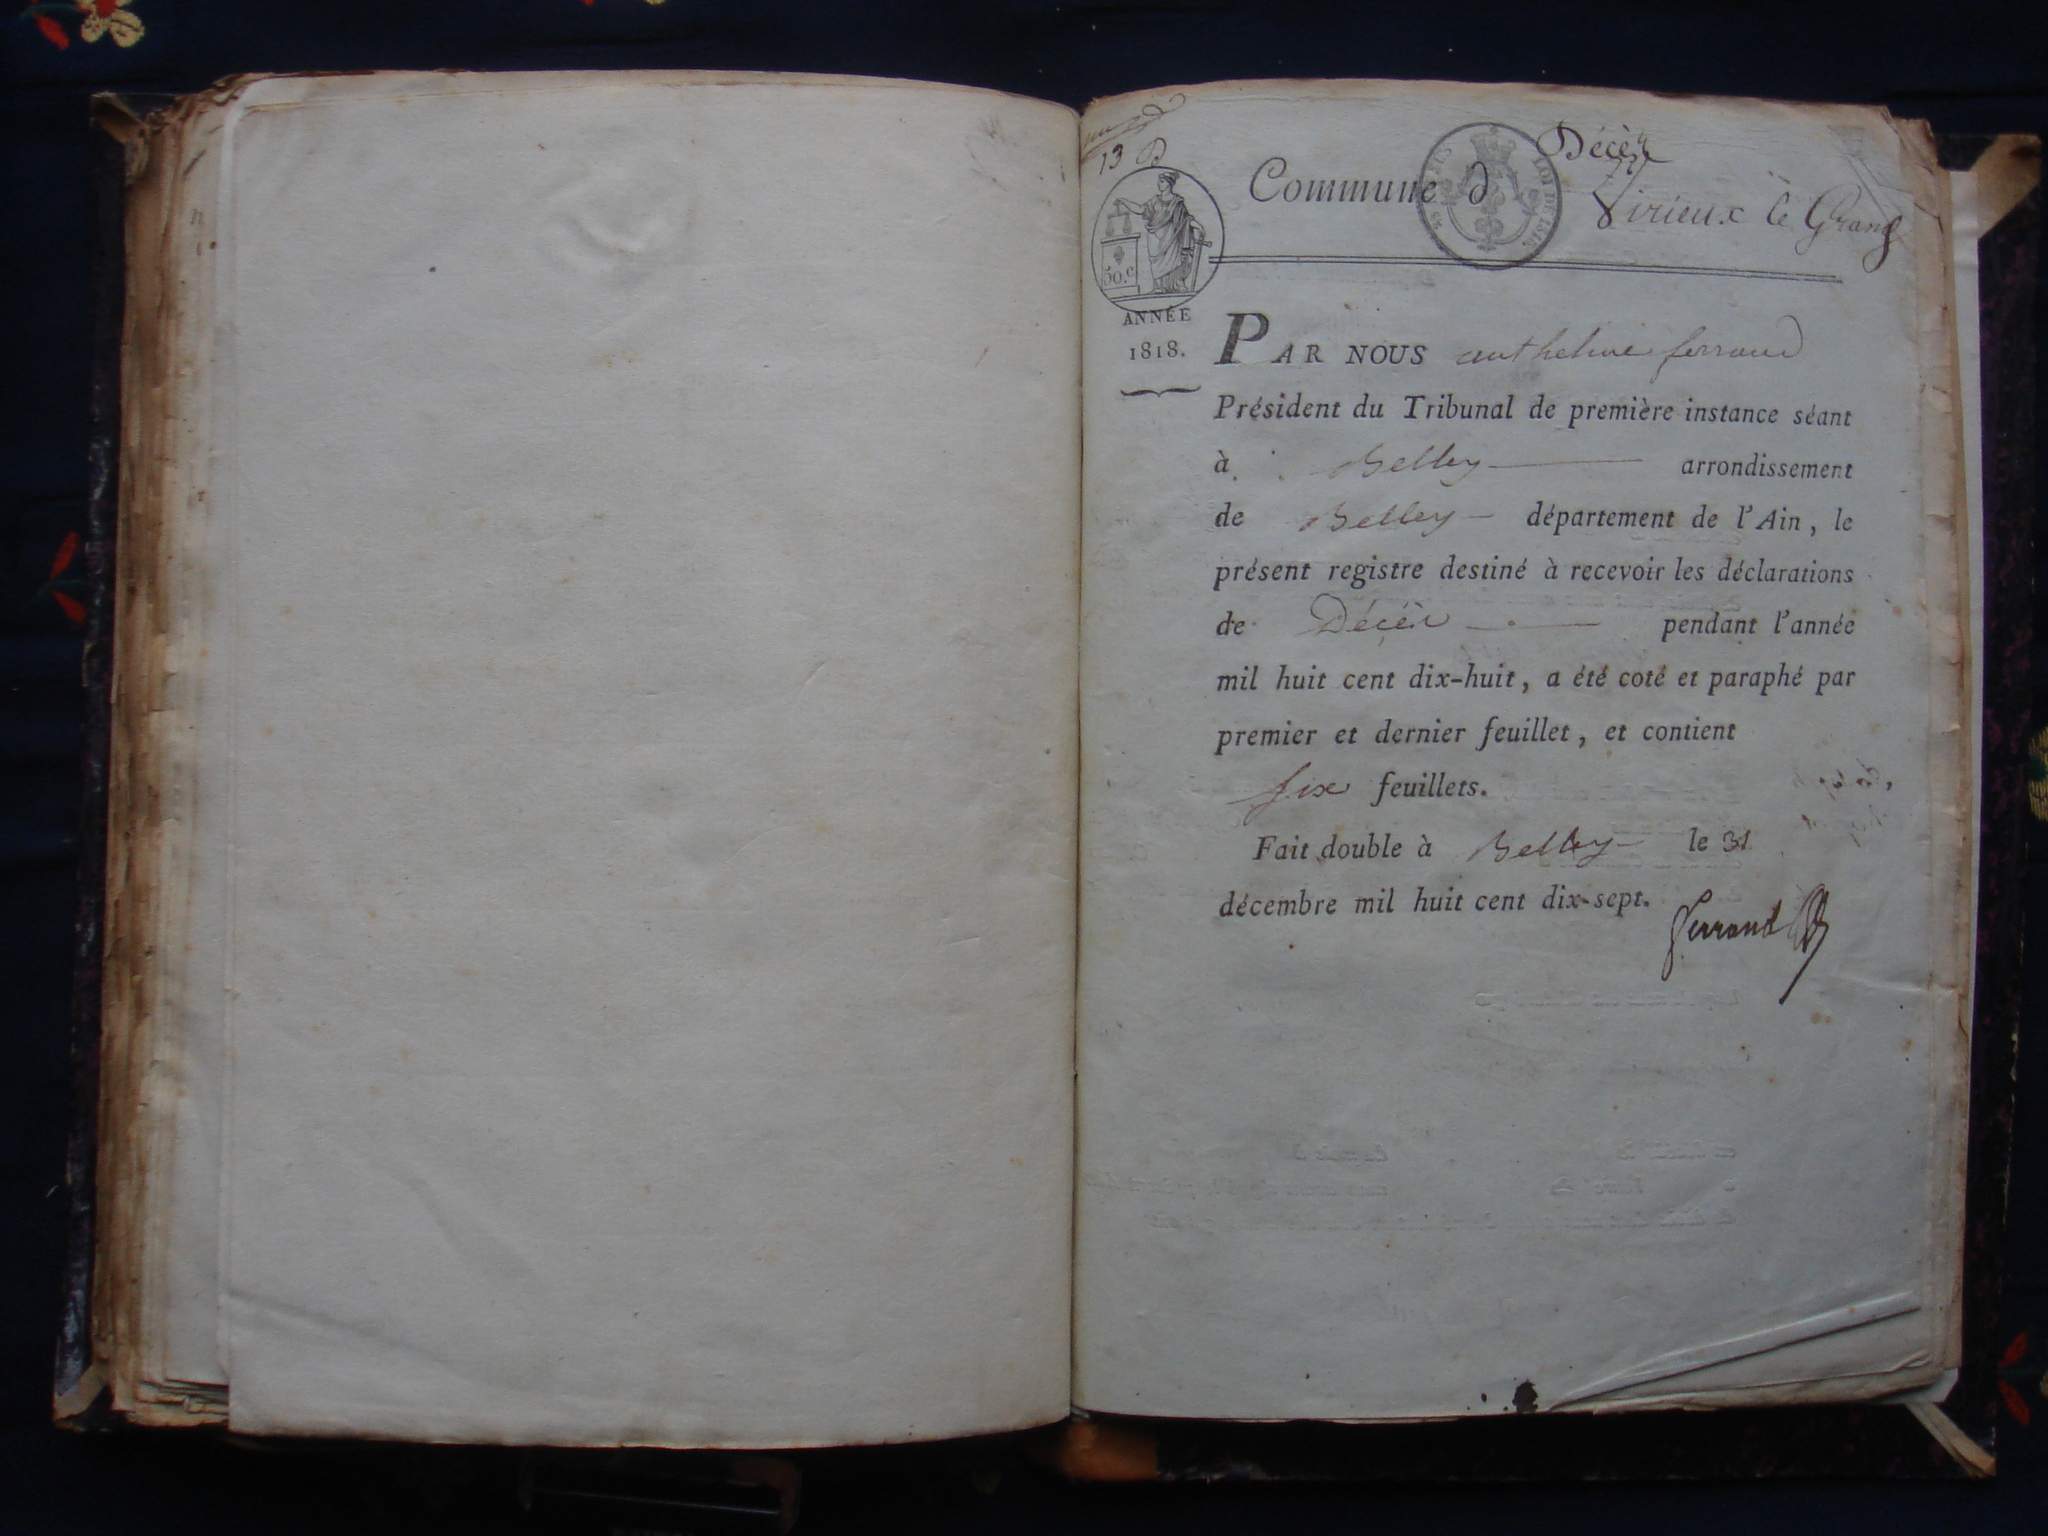 13 D
Décès
Commune d Virieux le Grand
LOI DE 1816
50. c
ANNÉE
1818.
PAR NOUS anthelme ferrand
Président du Tribunal de première instance séant
à Belley arrondissement
de Belley département de l'Ain, le
présent registre destiné à recevoir les déclarations
de Décès pendant l'année
mil huit cent dix-huit, a été coté et paraphé par
premier et dernier feuillet, et contient
six feuillets.
Fait double à Belley le 31
décembre mil huit cent dix-sept.
Ferrand